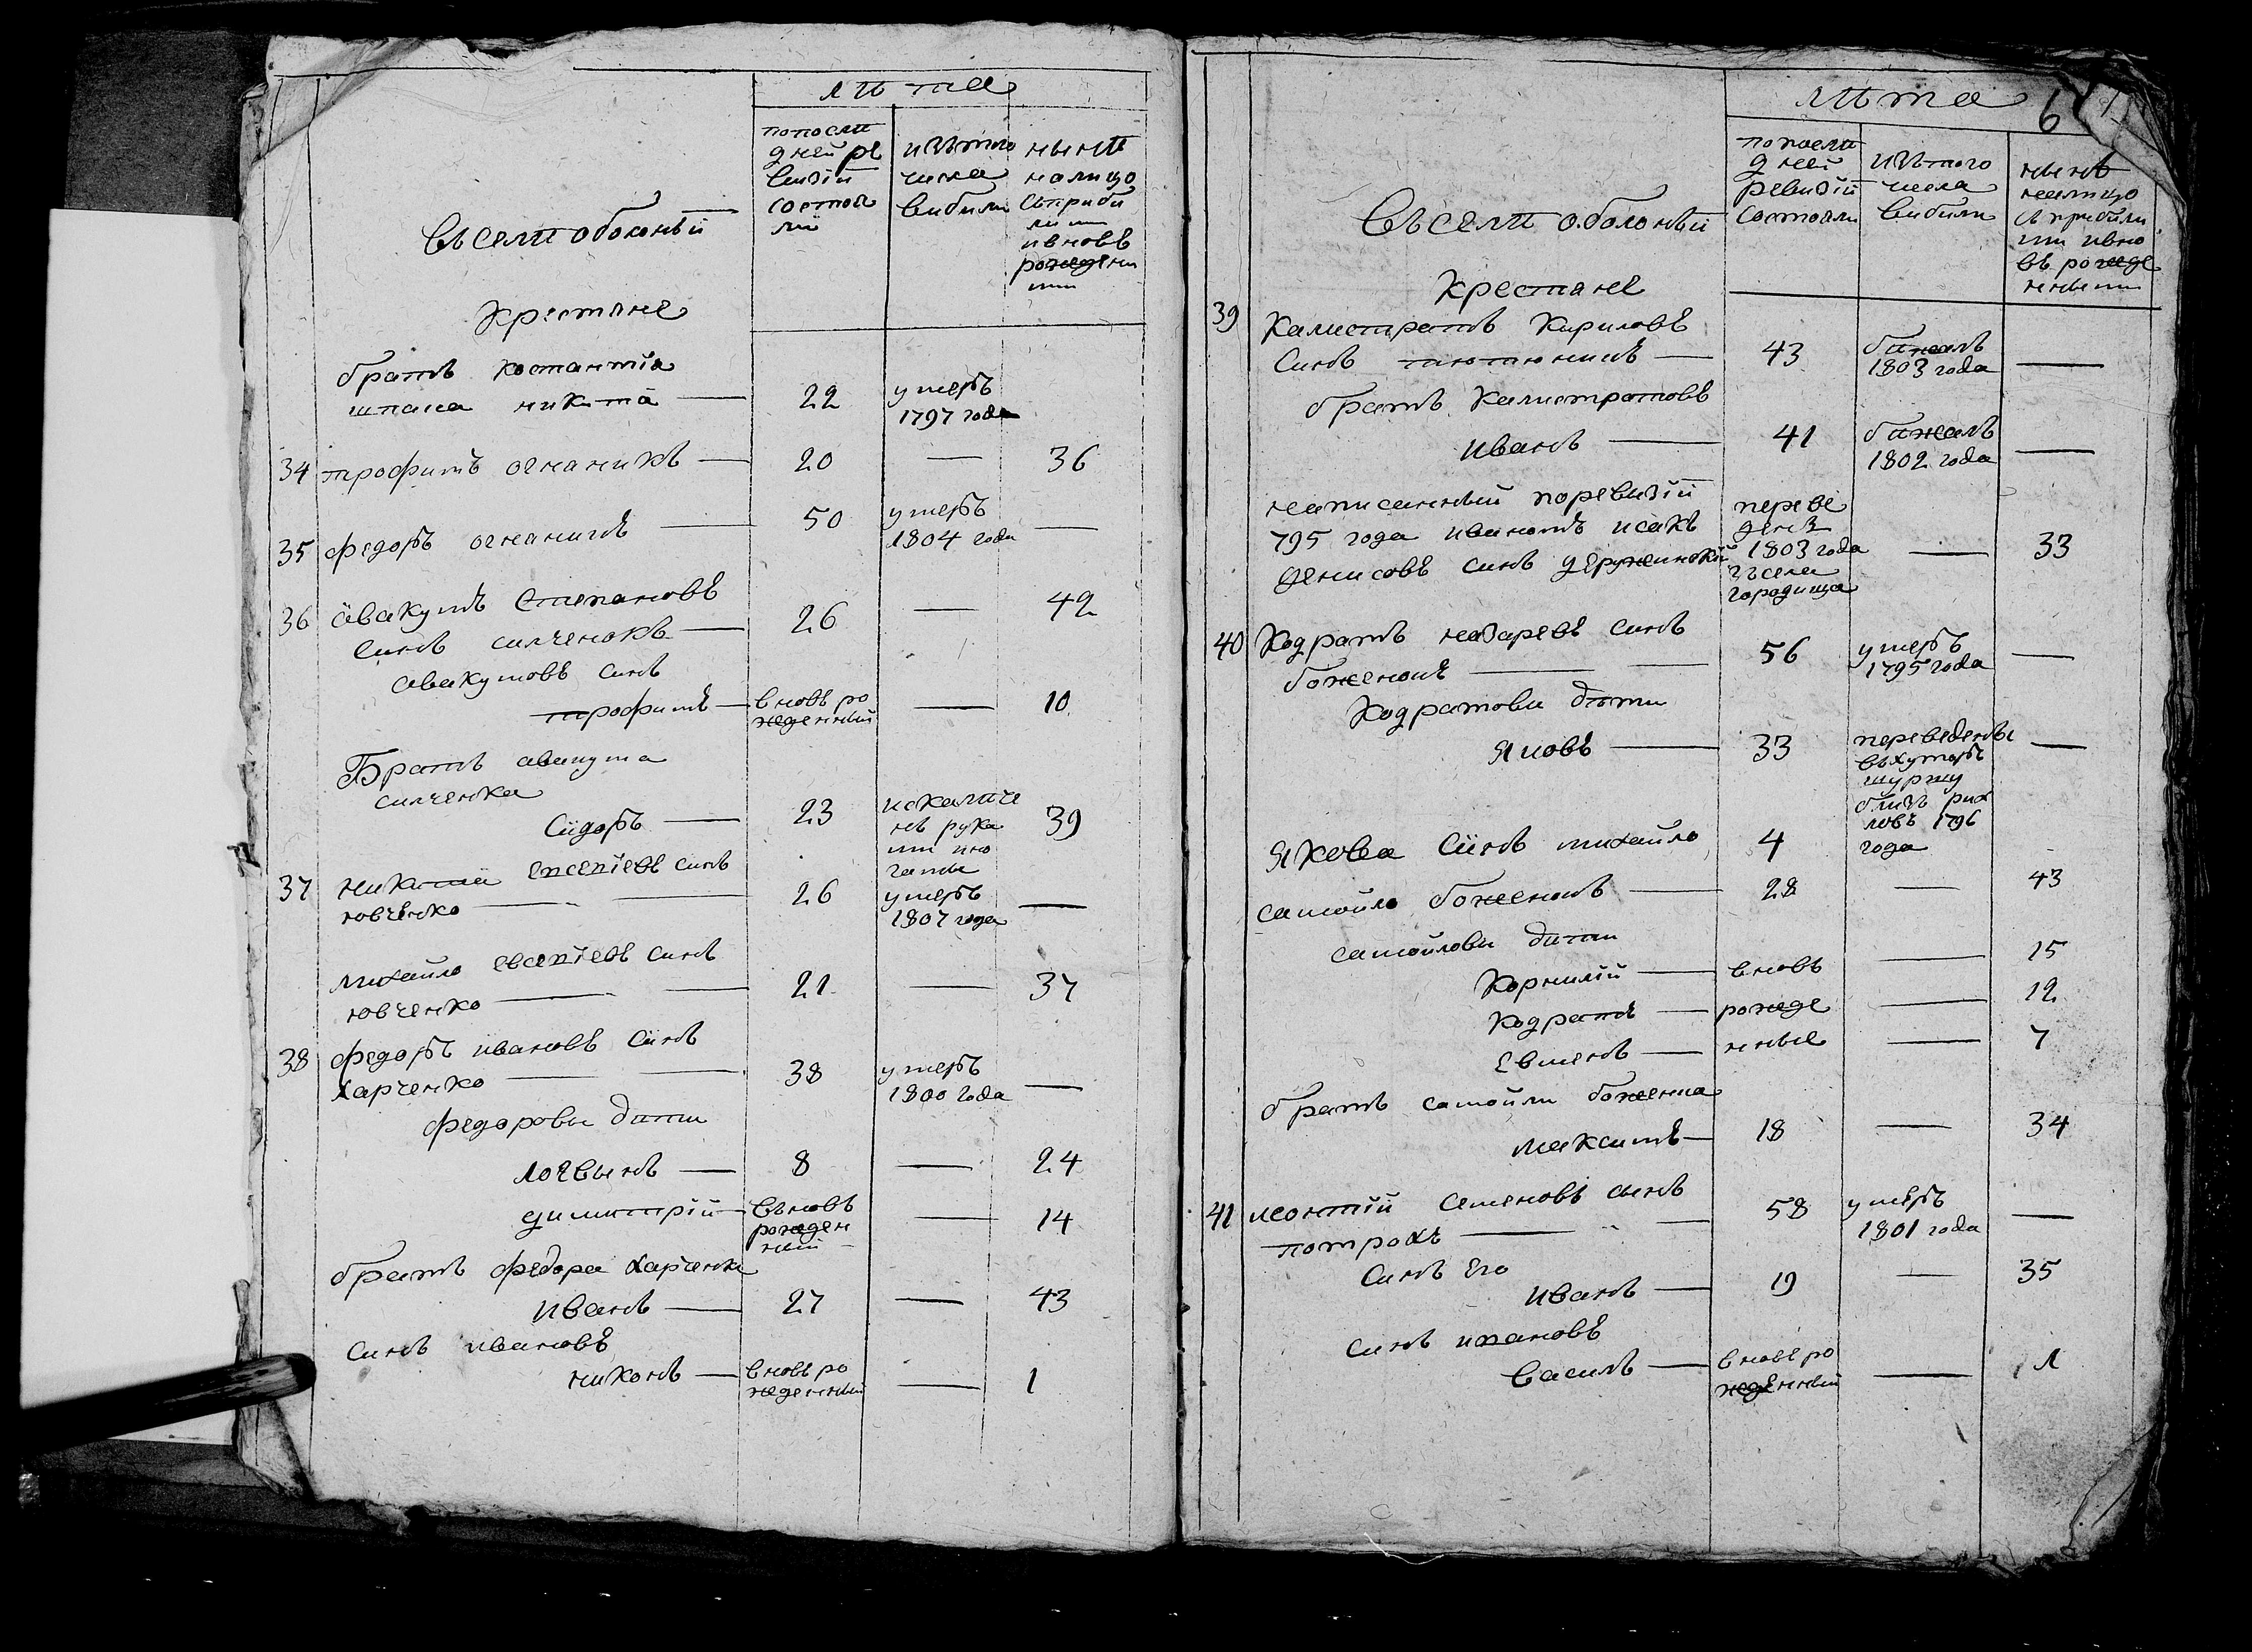 лѣта
попослѣ
дней ре
визіи
состоя
ли
изътого
числа
вибили
нынѣ
налицо
съприби
лими
ивновь
рожденн
ими
Въселѣ оболоньи
Крестяне
братъ костантіа
шпака никита — 22 умеръ
1797 года
34 трофимъ огнаникъ — 20 — 36
35 федоръ огнаникъ — 50 умеръ
1804 года —
36 авакумъ степановъ
синъ силченокъ — 26 — 42
авакумовъ синъ
трофимъ — вновь ро
жденный — 10
Братъ авакума
силченка
Сидоръ — 23 искалѣче
нъ рука
ми ино
гами 39
37 никита евсеніевъ синъ
ювченко — 26 умеръ
1807 года —
михайло евсеніевъ синъ
ювченко — 21 — 37
38 федоръ ивановъ синъ
харченко — 38 умеръ
1800 года —
федорови дѣти
логвынъ — 8 — 24
димитрій — въновь
рожден
ний — 14
братъ федора харченка
иванъ — 27 — 43
синъ ивановъ
никонъ — вновь ро
жденный — 1
лѣта 6
попослѣ
дней
ревизіи
состояли
изътого
числа
вибили
нынѣ
налицо
съприбили
ми ивно
вь рожде
нными
Въселѣ оболоньи
Крестяне
39 Калистратъ Кириловъ
синъ тютюникъ — 43 бижалъ
1803 года —
братъ Калистратовъ
иванъ — 41 бижалъ
1802 года —
написанный поревизіи
795 года иваномъ исакъ
денисовъ синъ держинскій
переве
денъ
1803 года
зъсела
городища — 33
40 Кодратъ назаревъ синъ
боженокъ — 56 умеръ
1795 года —
Кодратови дѣти
Яковъ — 33 переведены
въхуторъ
шурму
близь рих
ловъ 1796
года —
Якова синъ михайло 4
самойло боженокъ — 28 — 43
самойлови дѣти
Корнилій — вновь — 15
Кодратъ — рожде — 12
Евменъ — нные — 7
братъ самойли боженка
Максимъ — 18 — 34
41 леонтій семеновъ сынъ
потрохъ — 58 умеръ
1801 года —
синъ его
иванъ — 19 — 35
синъ ивановъ
василь — вновь ро
жденный — 1